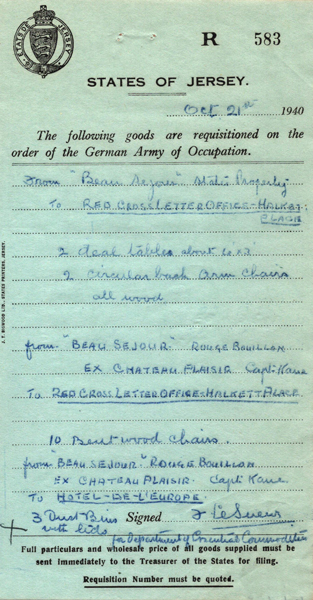 STATES OF JERSEY
R 583
STATES OF JERSEY.
Oct 21st 1940
The following goods are requisitioned on the
order of the German Army of Occupation.
From "Beau Sejour" Property
To RED CROSS LETTER OFFICE - HALKET:
PLACE
2 deal tables about 6'x3'
2 circular back arm chairs
all wood
from "BEAU SEJOUR" ROUGE BOUILLON
EX CHATEAU PLAISIR Capt: Kane
TO RED CROSS LETTER OFFICE - HALKETT PLACE
10 Bentwood Chairs.
from "BEAU SEJOUR" ROUGE BOUILLON
EX CHATEAU PLAISIR. Capt: Kane
TO HOTEL-DE-L'EUROPE
3 Dust Bins Signed Le Sueur
with lids for Department of Essential Commodities
Full particulars and wholesale price of all goods supplied must be
sent immediately to the Treasurer of the States for filing.
Requisition Number must be quoted.
J. T. BIGWOOD LTD., STATES PRINTERS, JERSEY.